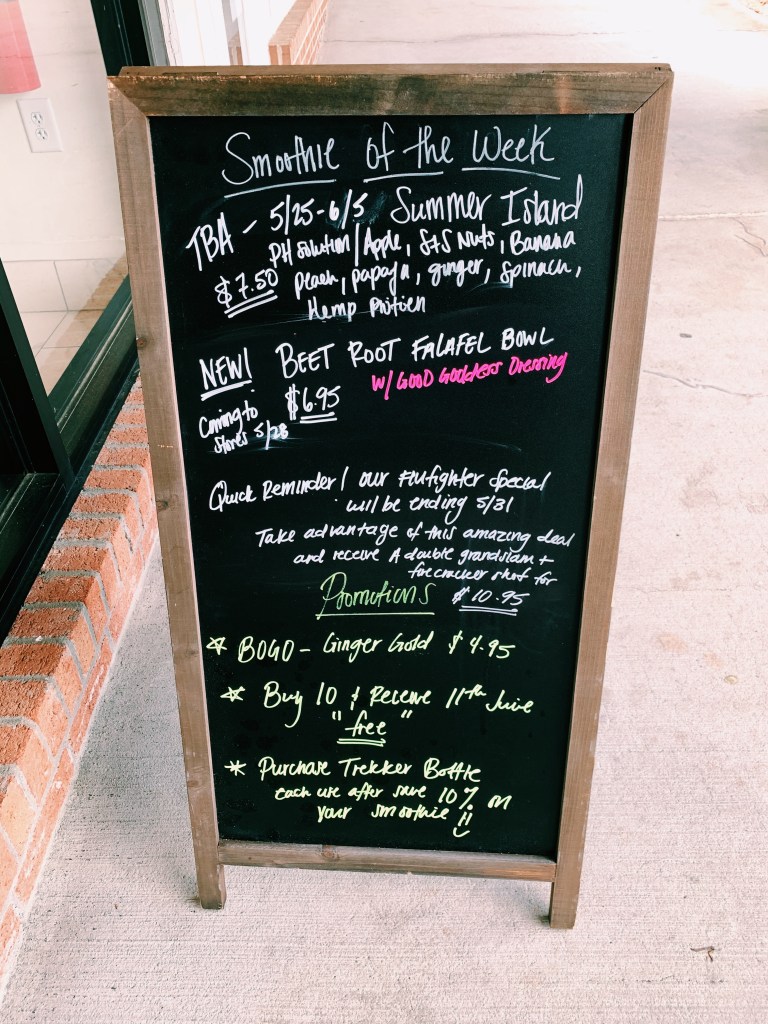 Smoothie of the Week
TBA - 5/25-6/5 Summer Island
PH Solution / Apple, S+S Nuts, Banana
$7.50 peach, papaya, ginger, spinach,
Hemp Protien
NEW! BEET ROOT FALAFEL BOWL
W/ GOOD GODDESS Dressing
$6.95
Coming to
stores 5/28
Quick Reminder! our Firefighter special
will be ending 5/31
Take advantage of this amazing deal
and receive A double grandslam +
firecracker shot for
$10.95
Promotions
BOGO - Ginger Gold $4.95
Buy 10 + Receive 11th Juice
"free"
* Purchase Trekker Bottle
each use after save 10% on
your smoothie !!